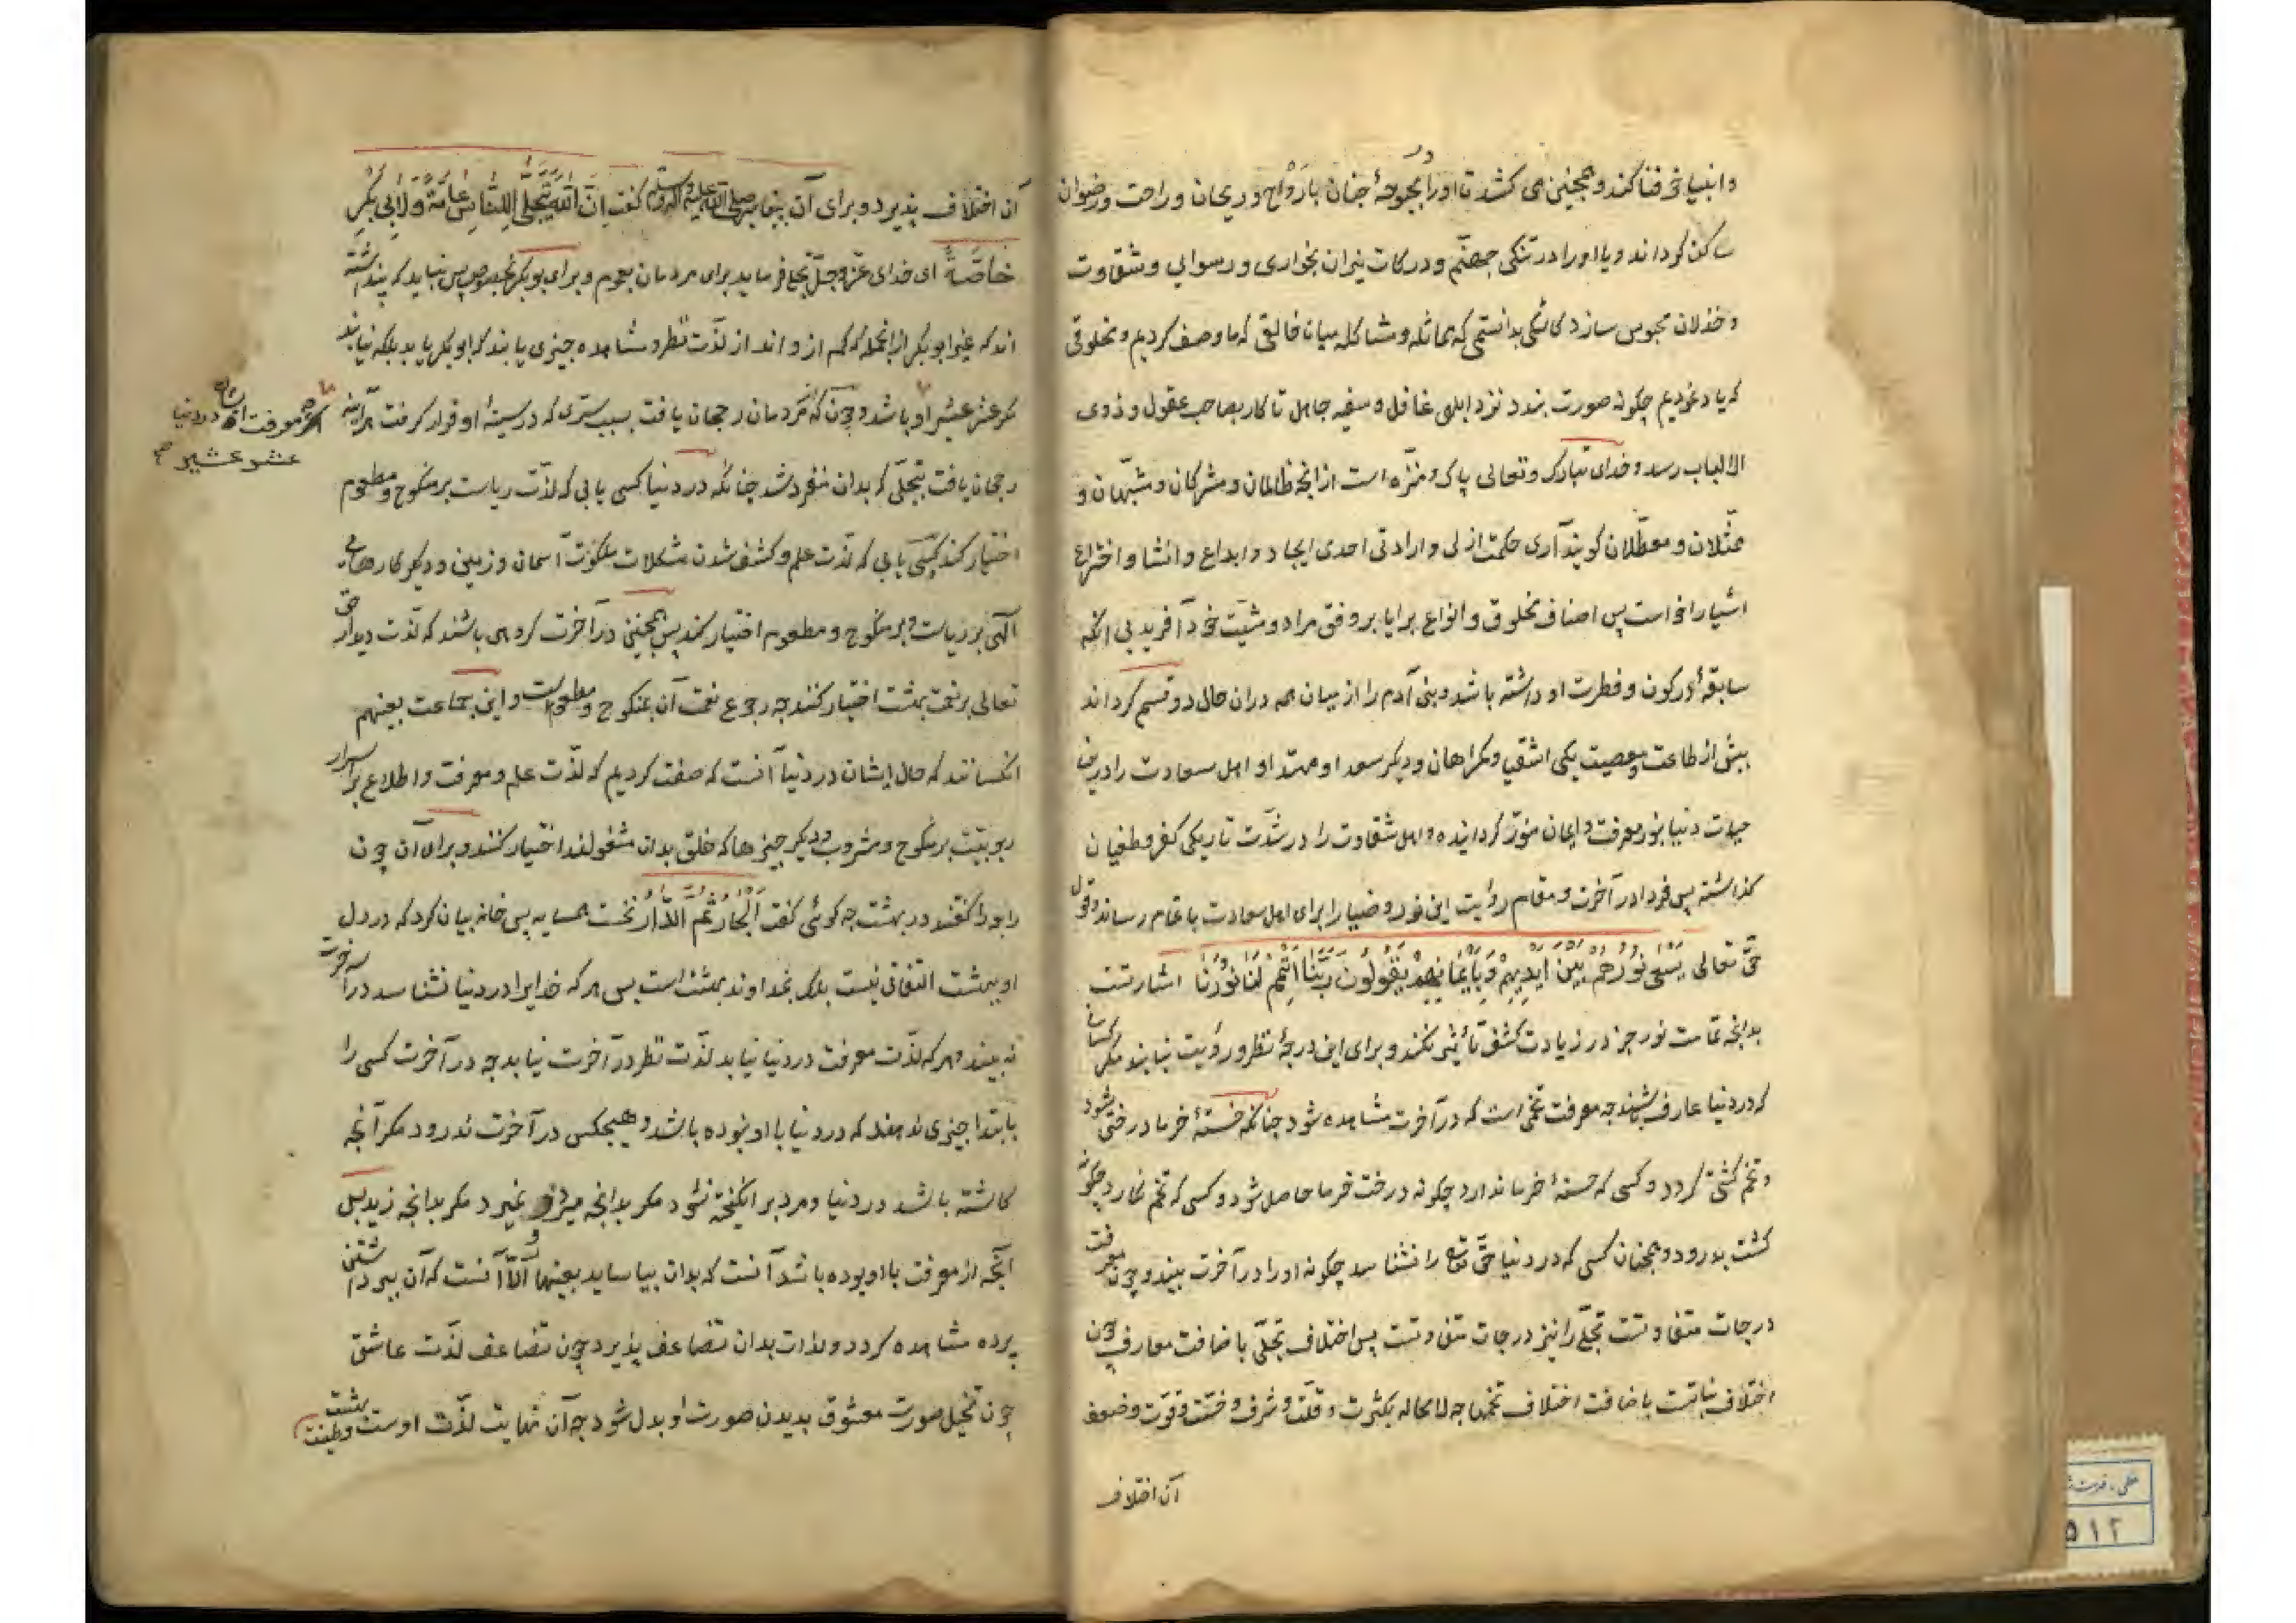 وانبیا خرفنا کند و همچنین می کشد تا او را در بحبوحهٔ جنان با رَوْاح و ریحان و راحت و رضوان
ساکن کرداند و یا او را در تنکی جهنّم و درکات نیران بخواری و رسوایی و شقاوت
و خذلان محبوس سازد کاشکی بدانستمی که مماثله و مشاکله میان خالقی که ما وصف کردیم و مخلوقی
که یاد نمودیم چکونه صورت بندد نزد ابلهی غافل و سفیه جاهل تا کار بصاحب عقول و ذوی
الالباب رسد و خدای تبارک و تعالی پاک و منزّه است از انچه ظالمان و مشرکان و مشبّهان و
ممثّلان و معطّلان کویند آری حکمت ازلی و ارادتی احدی ایجاد و ابداع و انشا و اختراع
اشیا را خواست پس اصناف مخلوق و انواع برایا بر وفق مراد و مشیّت خود آفرید بی انکه
سابقهٔ در کون و فطرت او داشته باشد و بنی آدم را از میان همه دران حال دو قسم کرداند
پیش از طاعت و معصیت یکی اشقیا و کمراهان و دیکر سعدا و مهتدا و اهل سعادت را درین
حیات دنیا بنور معرفت و ایمان منوّر کردانیده و اهل شقاوت را در شدّت تاریکی کفر و طغیان
کذاشته پس فردا در آخرت و مقام رؤیت این نور و ضیا را برای اهل سعادت باتمام رساند و قول
حقّ تعالی یَسْعی نُورُهُمْ بَیْنَ اَیْدِیهِمْ وَبِاَیْمَانِهِمْ یَقُولُونَ رَبَّنَا اَتْمِمْ لَنَا نُورَنَا اشارتست
بدانچه تمامت نور جز در زیادت کشف تأثیر نکند و برای این درجهٔ نظر و رؤیت نیابند مکر کسانی
که در دنیا عارف باشند چه معرفت تخمی است که در آخرت مشاهده شود چنانکه خستهٔ خرما درختی شود
و تخم کشتی کردد و کسی که خستهٔ خرما ندارد چکونه درخت خرما حاصل شود و کسی که تخم نکارد چکونه
کشت بدرود و همچنان کسی که در دنیا حقّ تعالی را نشناسد چکونه او را در آخرت بیند و چون معرفت
درجات متفاوتست تجلّی را نیز درجات متفاوتست پس اختلاف تجلّی باضافت معارف چون
اختلاف نباتست باضافت اختلاف تخمها چه لامحاله بکثرت و قلّت و شرف و خسّت و قوّت و ضعف
آن اختلاف
آن اختلاف پذیرد و برای آن پیغامبر صلی الله علیه و آله و سلم کفت اِنَّ اللّٰهَ یَتَجَلّیٰ لِلنَّاسِ عَامَّةً وَلِاَبِی بَکْرٍ
خَاصَّةً ای خدای عزّ و جلّ تجلّی فرماید برای مردمان بعموم و برای بوبکر بخصوص پس نباید که پنداشته
اند که غیر ابوبکر از انجمله که کم از و اند از لذّت نظر و مشاهده چیزی یابند که ابوبکر یابد بلکه نیابند
مکر عشر عشیر او باشد و چون که بر مردمان رجحان یافت بسبب سرّی که در سینهٔ او قرار کرفت هرآینه
اکر معرفت او در دنیا
عشر عشیر
رجحان یافت بتجلّی که بدان منفرد شد چنانکه در دنیا کسی یابی که لذّت ریاست بر منکوح و مطعوم
اختیار کند و کسی یابی که لذّت علم و کشف شدن مشکلات ملکوت آسمان و زمین و دیکر کارهای
آلهی بر ریاست و بر منکوح و مطعوم اختیار کند پس همچنین در آخرت کروهی باشند که لذّت دیدار حق
تعالی بر نعمت بهشت اختیار کنند چه رجوع نعمت آن بمنکوح و مطعوم است و این جماعت بعینهم
انکسانند که حال ایشان در دنیا آنست که صفت کردیم که لذّت علم و معرفت و اطلاع بر اسرار
ربوبیّت بر منکوح و مشروب و دیکر چیزها که خلق بدان مشغولند اختیار کنند و برای آن چون
رابعه را کفتند در بهشت چه کوئی کفت اَلْجَارُ ثُمَّ الدَّارُ نخست همسایه پس خانه بیان کرد که در دل
او ببهشت التفاتی نیست بلک بخداوند بهشت است پس هر که خدایرا در دنیا نشناسد در آخرت
نه بیند و هر که لذّت معرفت در دنیا نیابد لذّت نظر در آخرت نیابد چه در آخرت کسی را
بابتدا چیزی ندهند که در دنیا با او نبوده باشد و هیچکس در آخرت ندرود مکر آنچه
کاشته باشد در دنیا و مرد بر انکیخته نشود مکر بدانچه میرد و نمیرد مکر بدانچه زید بل
آنچه از معرفت با او بوده باشد آنست که بدان بیاساید بعینها الّا آنست که آن بی داشتن
پرده مشاهده کردد و لذات بدان تضاعف پذیرد چون تضاعف لذّت عاشق
چون تخیل صورت معشوق بدیدن صورت او بدل شود چه آن نهایت لذّت اوست و طینت بهشت
۵۱۲